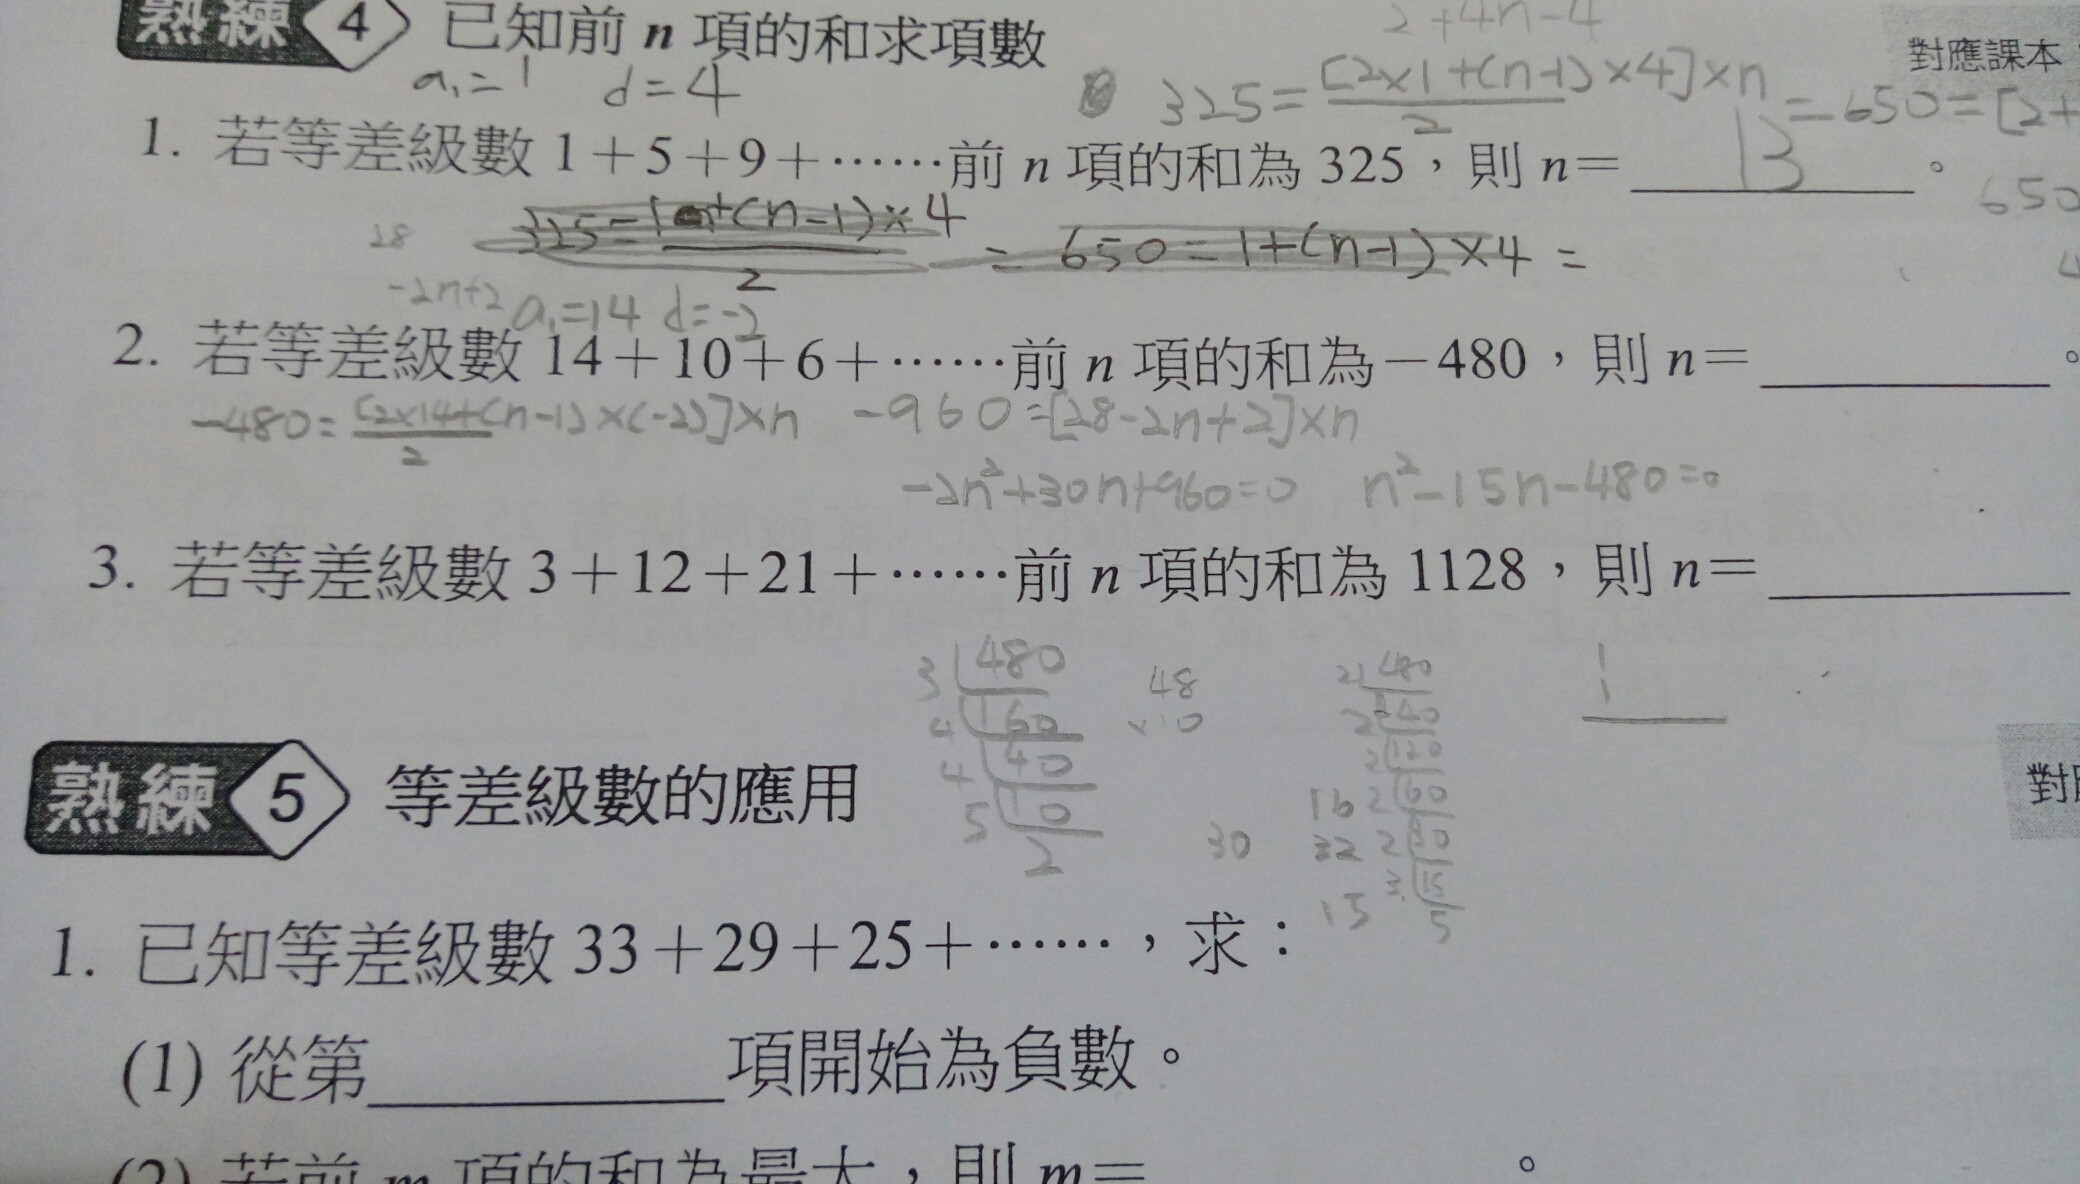 熟練 4 已知前 n 項的和求項數
2+4n-4
對應課本
a₁=1 d=4
325=[2×1+(n-1)×4]×n/2 =650=[2+
1. 若等差級數 1+5+9+……前 n 項的和為 325，則 n= 13 。
650
=650=1+(n-1)×4=
28
-2n+2 a₁=14 d=-2
2. 若等差級數 14+10+6+……前 n 項的和為-480，則 n=______。
-480=[2×14+(n-1)×(-2)]×n/2 -960=[28-2n+2]×n
-2n²+30n+960=0 n²-15n-480=0
3. 若等差級數 3+12+21+……前 n 項的和為 1128，則 n=______
3 480
4 160
4 40
5 10
2
48
×10
2 480
2 240
2 120
16 2 60
30 32 2 30
15 3 15
5
熟練 5 等差級數的應用
對應
1. 已知等差級數 33+29+25+……，求：
(1) 從第______項開始為負數。
(2) 若前 m 項的和為最大，則 m=______。